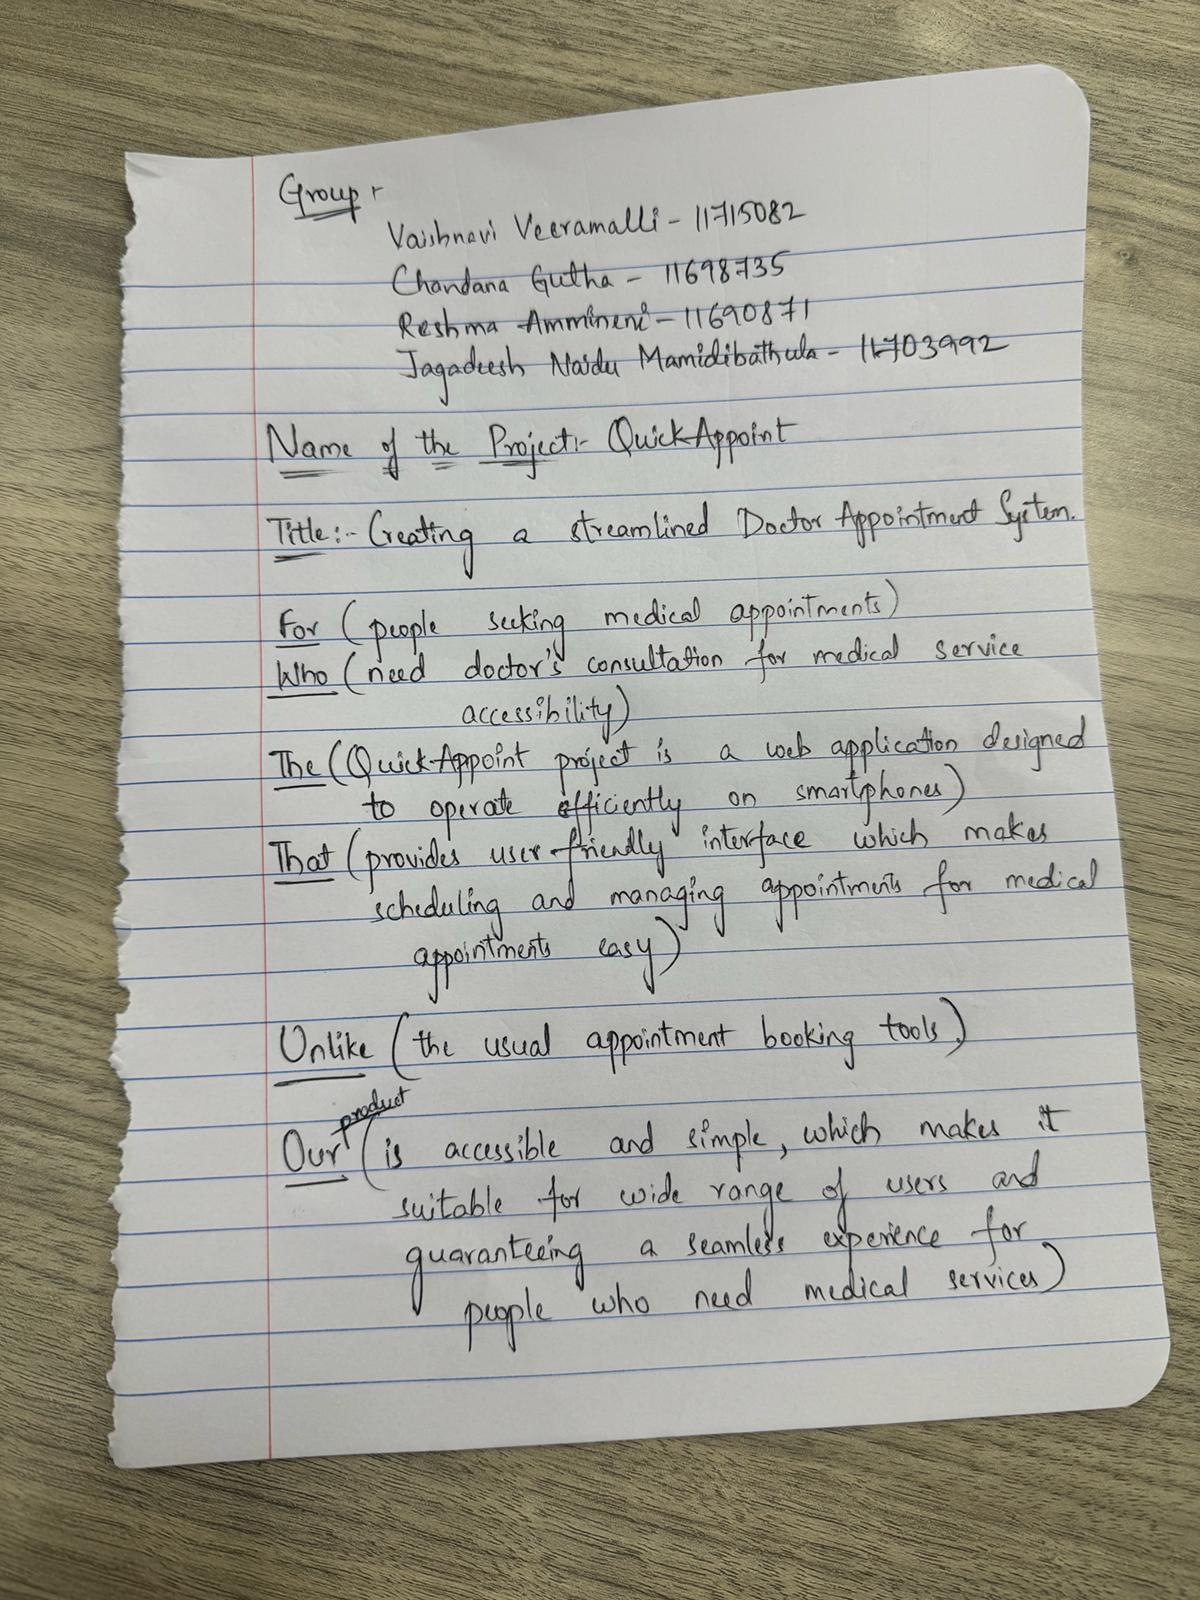 Group:-
Vaishnavi Veeramalli - 11715082
Chandana Gutha - 11698735
Reshma Ammineni - 11690871
Jagadeesh Naidu Mamidibathula - 11703992
Name of the Project:- QuickAppoint
Title:- Creating a streamlined Doctor Appointment System.
For (people seeking medical appointments)
Who (need doctor's consultation for medical service
accessibility)
The (QuickAppoint project is a web application designed
to operate efficiently on smartphones)
That (provides user-friendly interface which makes
scheduling and managing appointments for medical
appointments easy)
Unlike (the usual appointment booking tools.)
Our product (is accessible and simple, which makes it
suitable for wide range of users and
guaranteeing a seamless experience for
people who need medical services)